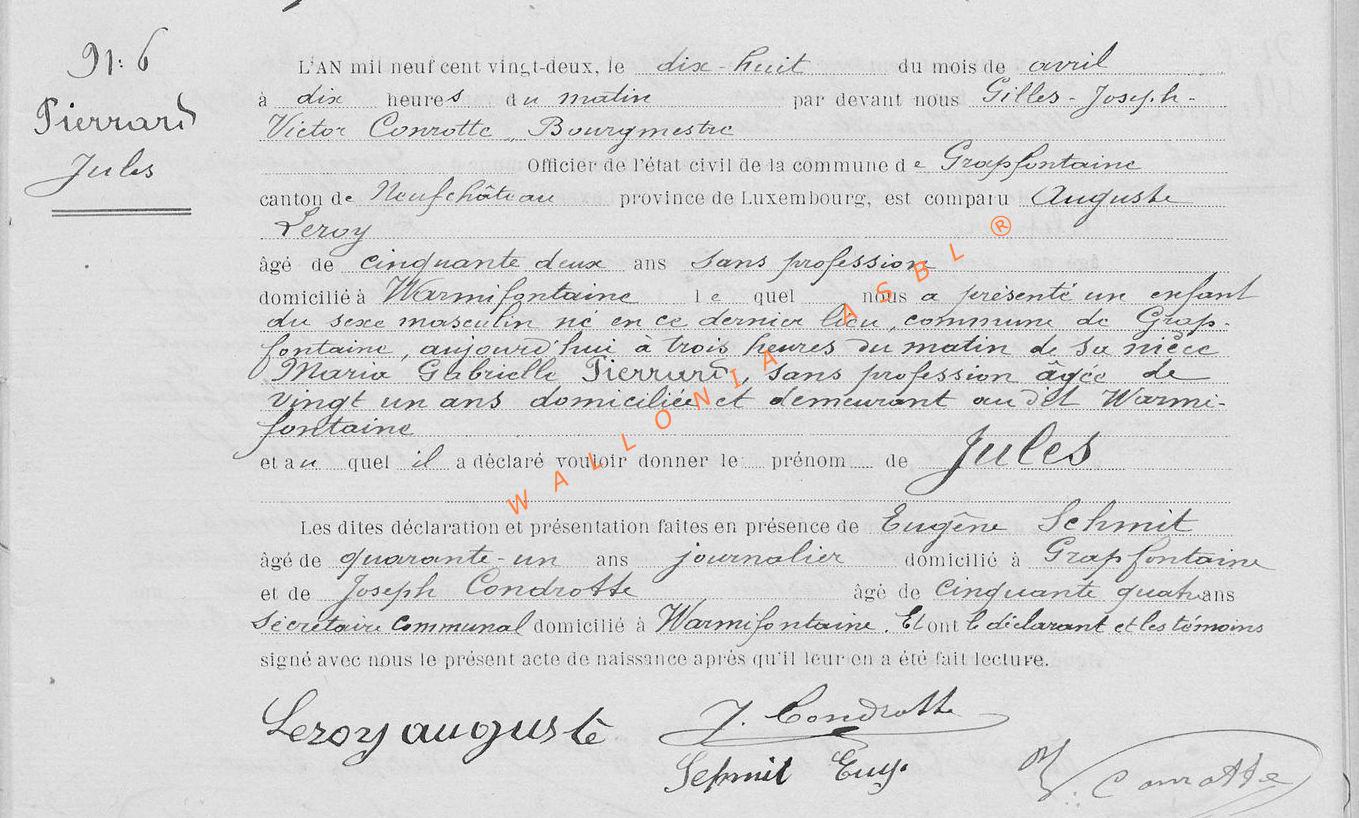 N: 6
Pierrard
Jules
L'AN mil neuf cent vingt-deux, le dix-huit du mois de avril
à dix heures du matin par devant nous Gilles-Joseph-
Victor Conrotte, Bourgmestre
Officier de l'état civil de la commune de Grapfontaine
canton de Neufchâteau province de Luxembourg, est comparu Auguste
Leroy
âgé de cinquante deux ans sans profession
domicilié à Warmifontaine le quel nous a présenté un enfant
du sexe masculin né en ce dernier lieu, commune de Grap-
fontaine, aujourd'hui à trois heures du matin de sa nièce
Maria Gabrielle Pierrard, sans profession âgée de
vingt un ans domiciliée et demeurant au dit Warmi-
fontaine
et au quel il a déclaré vouloir donner le prénom de Jules
Les dites déclaration et présentation faites en présence de Eugène Schmit
âgé de quarante-un ans journalier domicilié à Grapfontaine
et de Joseph Condrotte âgé de cinquante quatre ans
Secrétaire communal domicilié à Warmifontaine. Et ont le déclarant et les témoins
signé avec nous le présent acte de naissance après qu'il leur en a été fait lecture.
Leroy auguste J. Condrotte
Schmit Eug.
V. Conrotte
WALLONIA ASBL ®